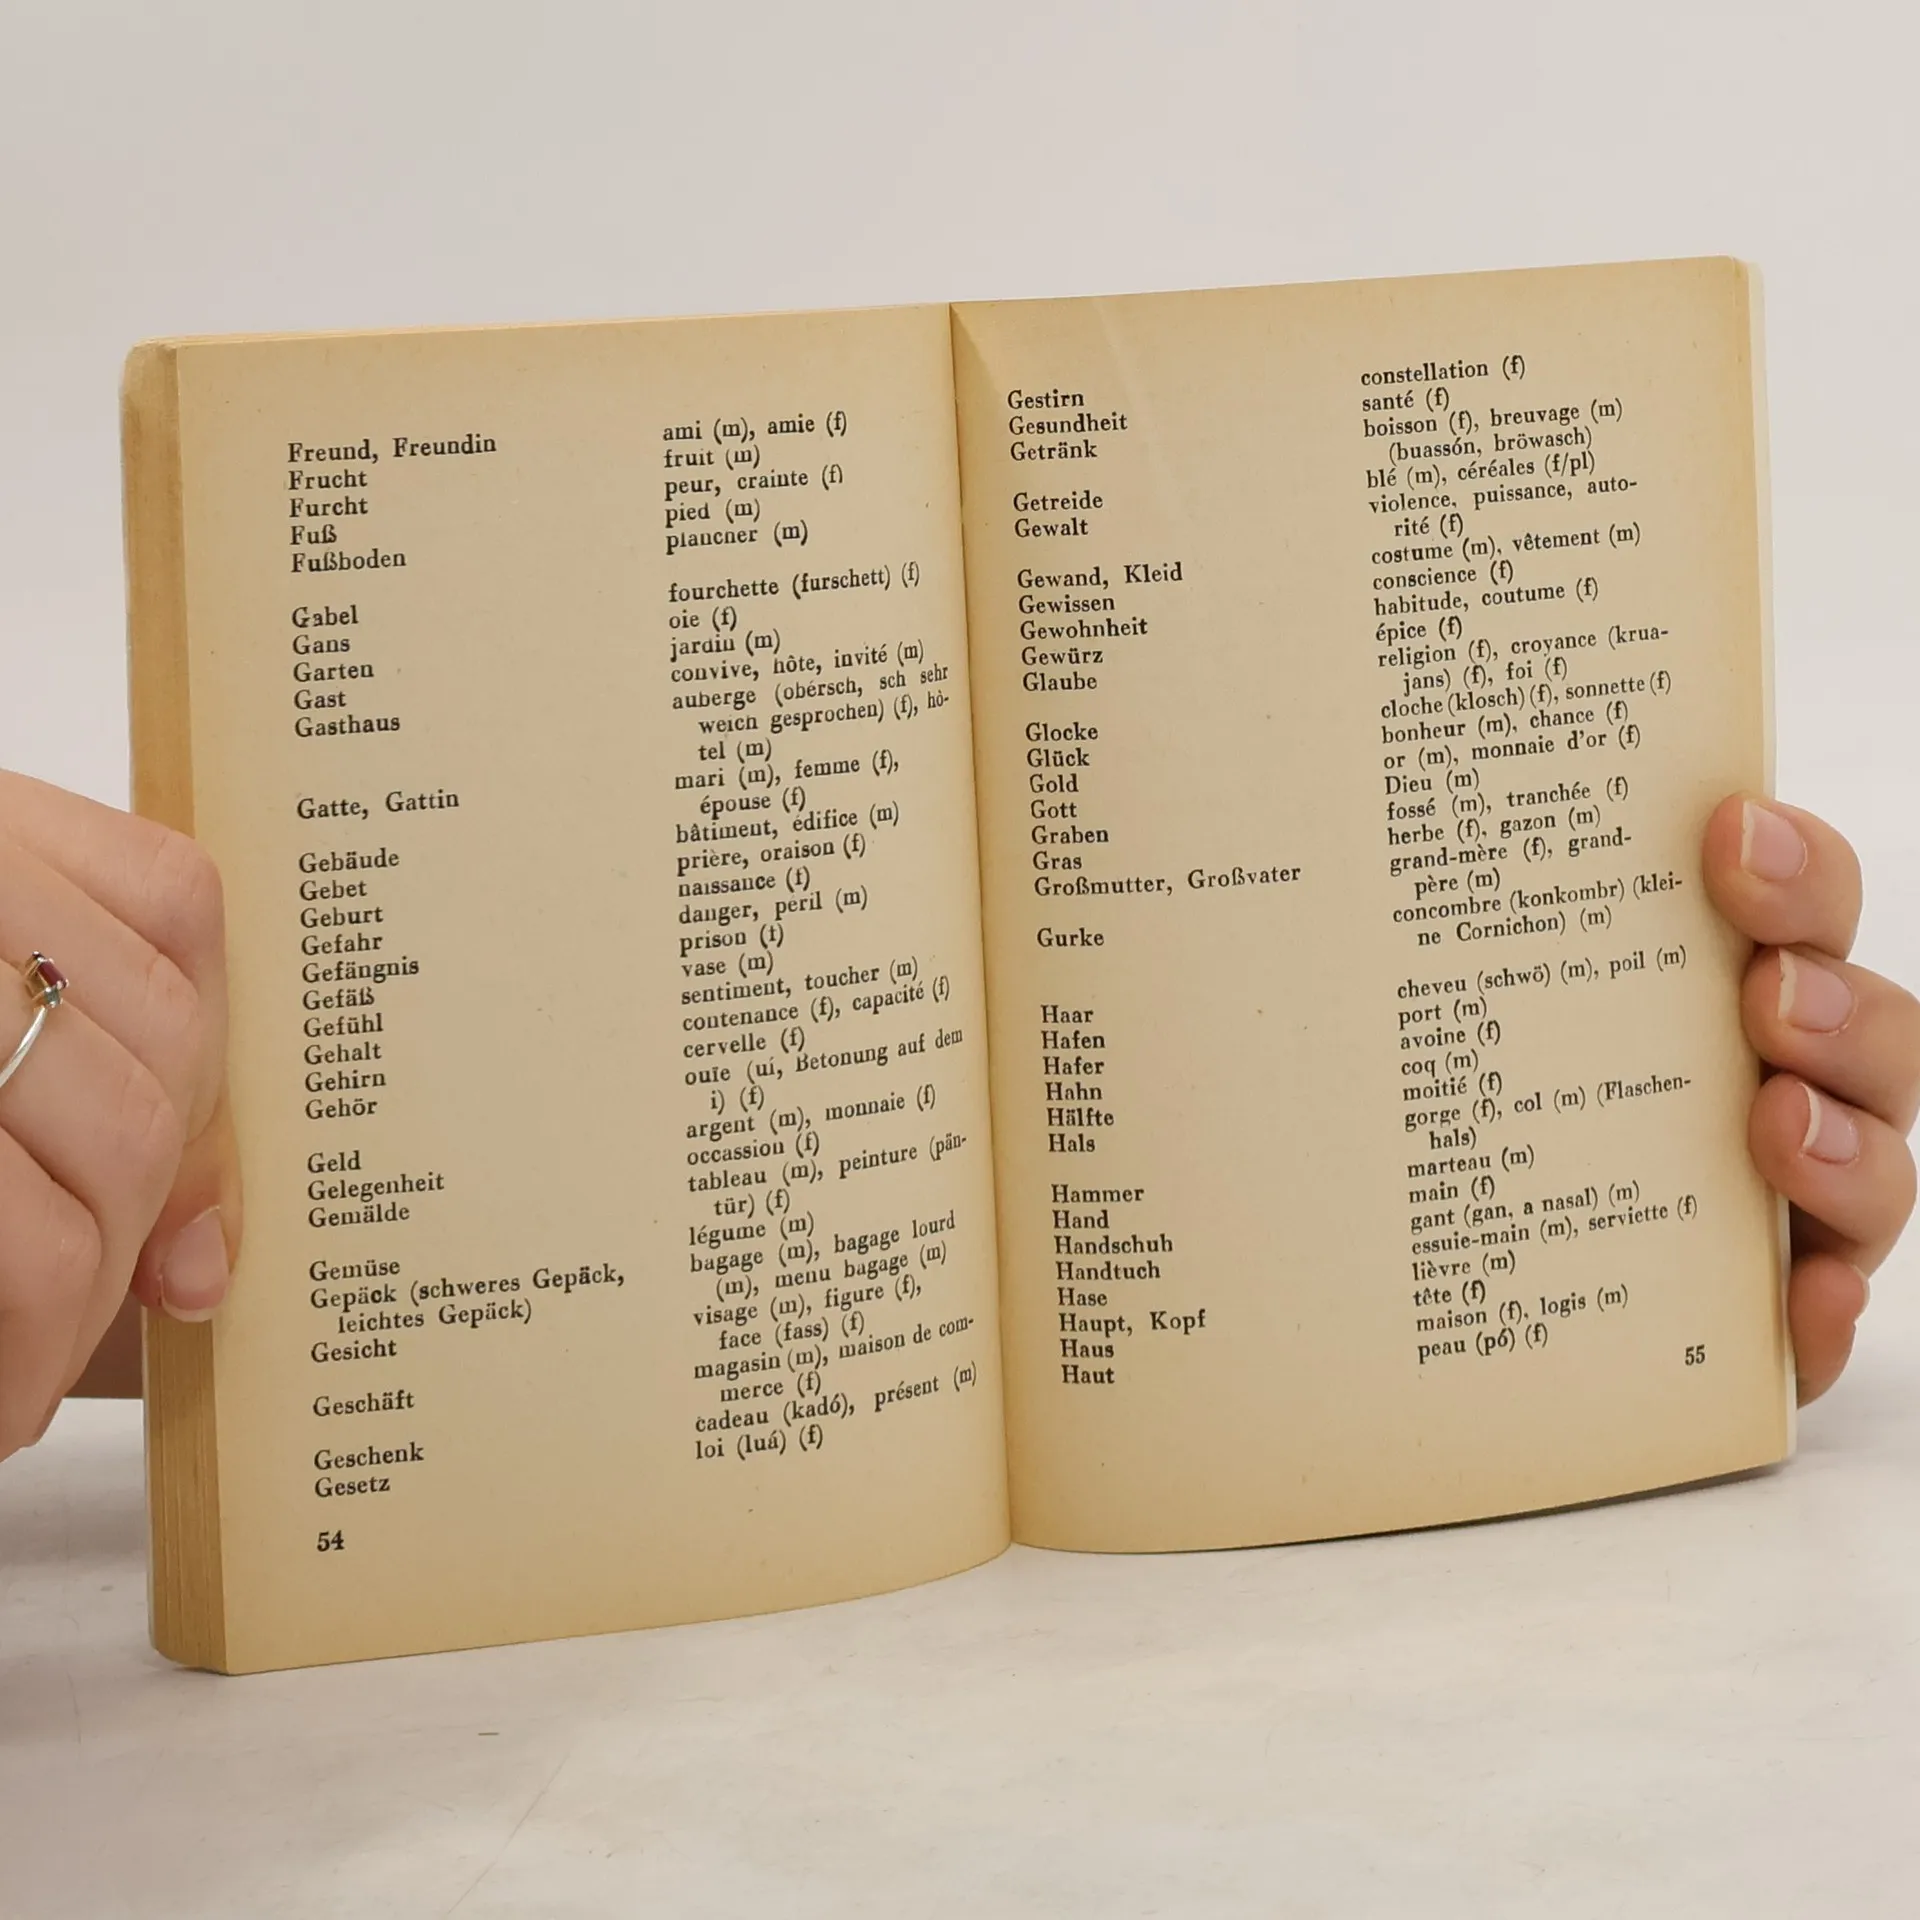 Freund, Freundin ami (m), amie (f)
Frucht fruit (m)
Furcht peur, crainte (f)
Fuß pied (m)
Fußboden plancher (m)
Gabel fourchette (furschett) (f)
Gans oie (f)
Garten jardin (m)
Gast convive, hôte, invité (m)
Gasthaus auberge (obérsch, sch sehr
weich gesprochen) (f), hô-
tel (m)
Gatte, Gattin mari (m), femme (f),
épouse (f)
Gebäude bâtiment, édifice (m)
Gebet prière, oraison (f)
Geburt naissance (f)
Gefahr danger, péril (m)
Gefängnis prison (f)
Gefäß vase (m)
Gefühl sentiment, toucher (m)
Gehalt contenance (f), capacité (f)
Gehirn cervelle (f)
Gehör ouïe (uí, Betonung auf dem
i) (f)
Geld argent (m), monnaie (f)
Gelegenheit occassion (f)
Gemälde tableau (m), peinture (pän-
tür) (f)
Gemüse légume (m)
Gepäck (schweres Gepäck, bagage (m), bagage lourd
leichtes Gepäck) (m), menu bagage (m)
Gesicht visage (m), figure (f),
face (fass) (f)
Geschäft magasin (m), maison de com-
merce (f)
Geschenk cadeau (kadó), présent (m)
Gesetz loi (luá) (f)
54
Gestirn constellation (f)
Gesundheit santé (f)
Getränk boisson (f), breuvage (m)
(buassón, bröwasch)
Getreide blé (m), céréales (f/pl)
Gewalt violence, puissance, auto-
rité (f)
Gewand, Kleid costume (m), vêtement (m)
Gewissen conscience (f)
Gewohnheit habitude, coutume (f)
Gewürz épice (f)
Glaube religion (f), croyance (krua-
jans) (f), foi (f)
Glocke cloche (klosch) (f), sonnette (f)
Glück bonheur (m), chance (f)
Gold or (m), monnaie d'or (f)
Gott Dieu (m)
Graben fossé (m), tranchée (f)
Gras herbe (f), gazon (m)
Großmutter, Großvater grand-mère (f), grand-
père (m)
Gurke concombre (konkombr) (klei-
ne Cornichon) (m)
Haar cheveu (schwö) (m), poil (m)
Hafen port (m)
Hafer avoine (f)
Hahn coq (m)
Hälfte moitié (f)
Hals gorge (f), col (m) (Flaschen-
hals)
Hammer marteau (m)
Hand main (f)
Handschuh gant (gan, a nasal) (m)
Handtuch essuie-main (m), serviette (f)
Hase lièvre (m)
Haupt, Kopf tête (f)
Haus maison (f), logis (m)
Haut peau (pó) (f)
55